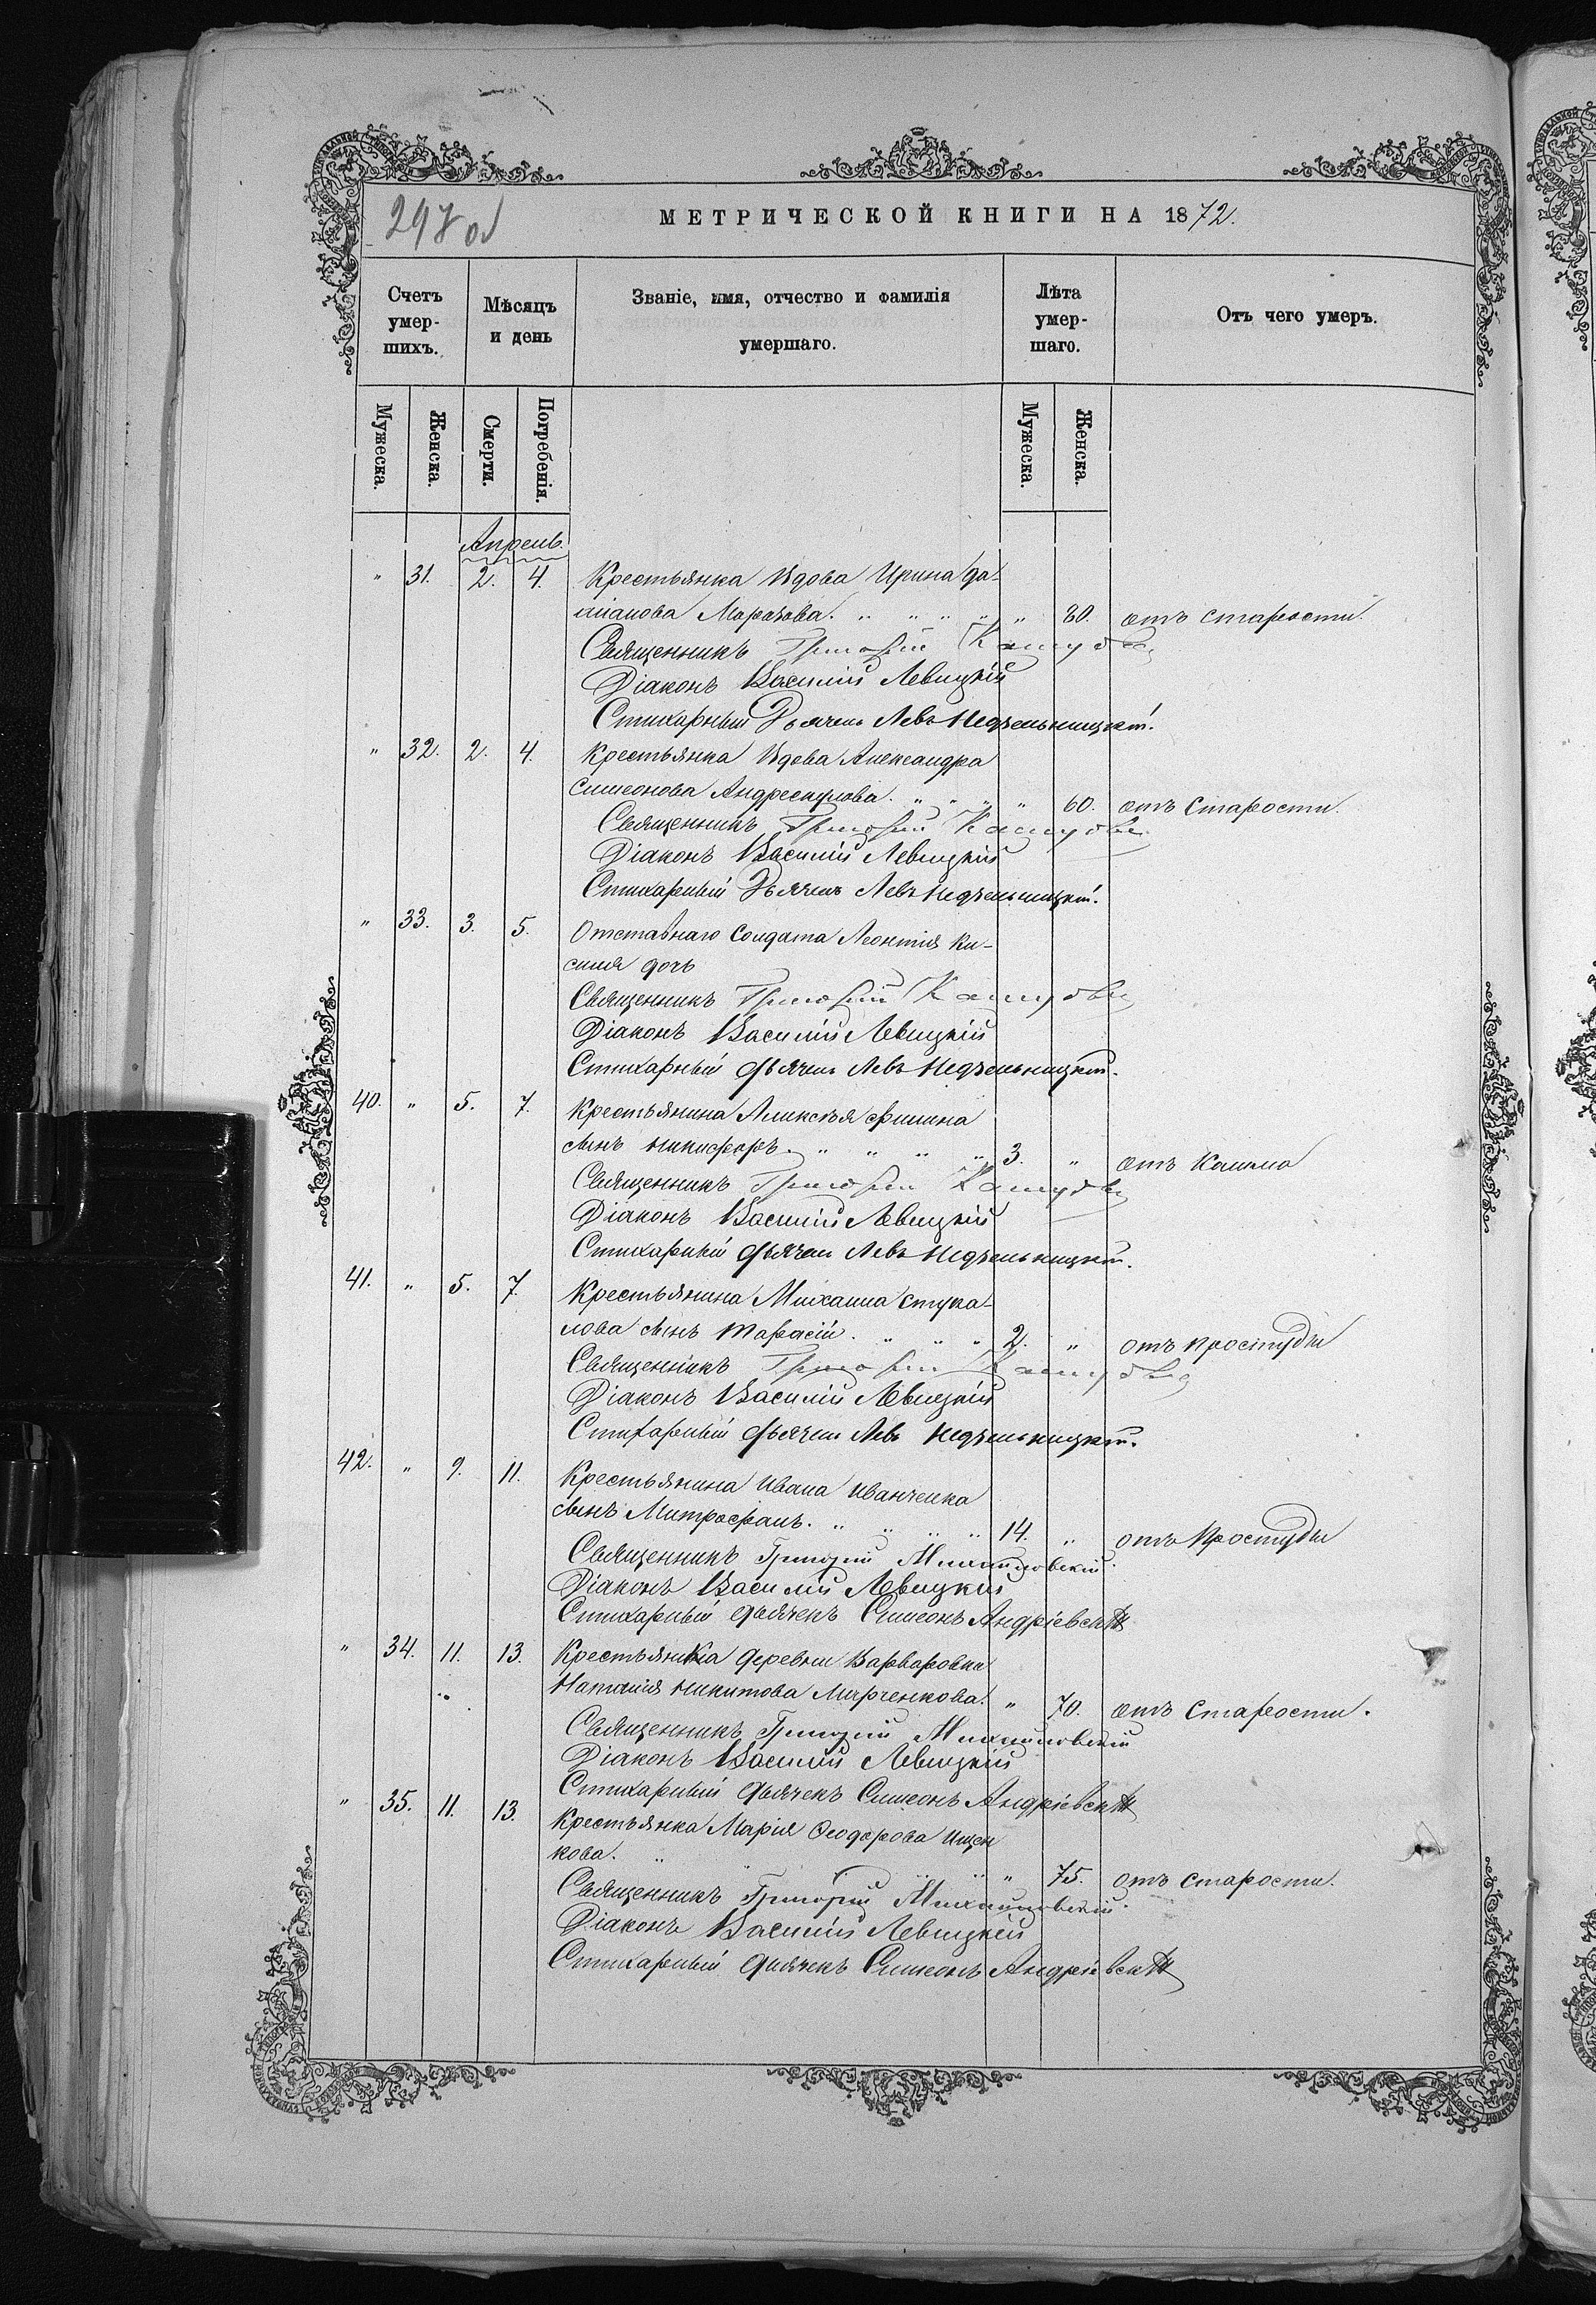 297 об
МЕТРИЧЕСКОЙ КНИГИ НА 1872.
Счетъ умер-шихъ. Мѣсяцъ и день Званіе, имя, отчество и фамилія умершаго. Лѣта умер-шаго. Отъ чего умеръ.
Мужеска. Женска. Смерти. Погребенія. Мужеска. Женска.
Апрель.
" 31. 2. 4. Крестьянка Вдова Ирина Да-
міанова Морозова. " " " " " 80. отъ старости.
Священникъ Григорій
Діаконъ Василій Левицкій
Стихарный Дьячекъ Левъ Недзельницкій.
" 32. 2. 4. Крестьянка Вдова Александра
Симеонова . " " " " 60. отъ Старости.
Священникъ Григорій
Діаконъ Василій Левицкій
Стихарный Дьячекъ Левъ Недзельницкій.
" 33. 3. 5. Отставнаго Солдата Леонтія Ки-
силя дочь
Священникъ Григорій
Діаконъ Василій Левицкій
Стихарный дьячекъ Левъ Недзельницкій.
40. " 5. 7. Крестьянина Аликсѣя Филина
сынъ Никифоръ. " " " " 3. " отъ Кашлю
Священникъ Григорій
Діаконъ Василій Левицкій
Стихарный дьячекъ Левъ Недзельницкій.
41. " 5. 7. Крестьянина Михаила Стука-
лова сынъ Тарасій. " " " 2. " отъ простуды
Священникъ Григорій
Діаконъ Василій Левицкій
Стихарный дьячекъ Левъ Недзельницкій.
42. " 9. 11. Крестьянина Ивана Иванченка
сынъ Митрофанъ. " " " " 14. " отъ Простуды
Священникъ Григорій Михайловскій.
Діаконъ Василій Левицкій
Стихарный дьячекъ Симеонъ Андріевскій
" 34. 11. 13. Крестьянка деревни Варваровки
Наталія Никитова Марченкова. " 70. отъ Старости.
Священникъ Григорій Михайловскій
Діаконъ Василій Левицкій
Стихарный дьячекъ Симеонъ Андріевскій
" 35. 11. 13. Крестьянка Марія Ѳеодорова Ищен
кова. " " " " " " 75. отъ старости.
Священникъ Григорій Михайловскій.
Діаконъ Василій Левицкій
Стихарный дьячекъ Симеонъ Андріевскій